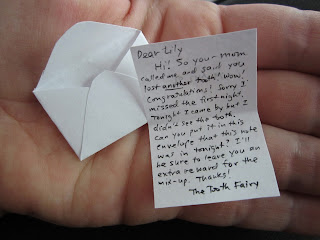 Dear Lily
Hi! So your mom
called me and said you
lost another tooth! Wow!
Congratulations! Sorry I
missed the first night.
Tonight I came by but I
didn't see the tooth.
Can you put it in this
envelope that this note
was in tonight? I'll
be sure to leave you an
extra reward for the
mix-up. Thanks!
The Tooth Fairy